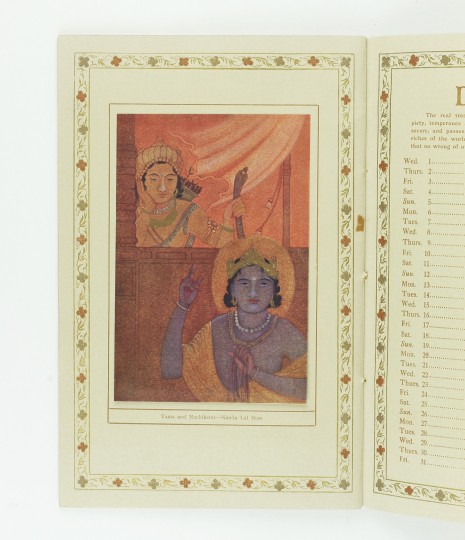 Yama and Nachiketa—Nanda Lal Bose
D
The real trea
piety, temperance
secure, and passes
riches of the world
that no wrong of
Wed. 1
Thurs. 2
Fri. 3
Sat. 4
Sun. 5
Mon. 6
Tues. 7
Wed. 8
Thurs. 9
Fri. 10
Sat. 11
Sun. 12
Mon. 13
Tues. 14
Wed. 15
Thurs. 16
Fri. 17
Sat. 18
Sun. 19
Mon. 20
Tues. 21
Wed. 22
Thurs. 23
Fri. 24
Sat. 25
Sun. 26
Mon. 27
Tues. 28
Wed. 29
Thurs. 30
Fri. 31